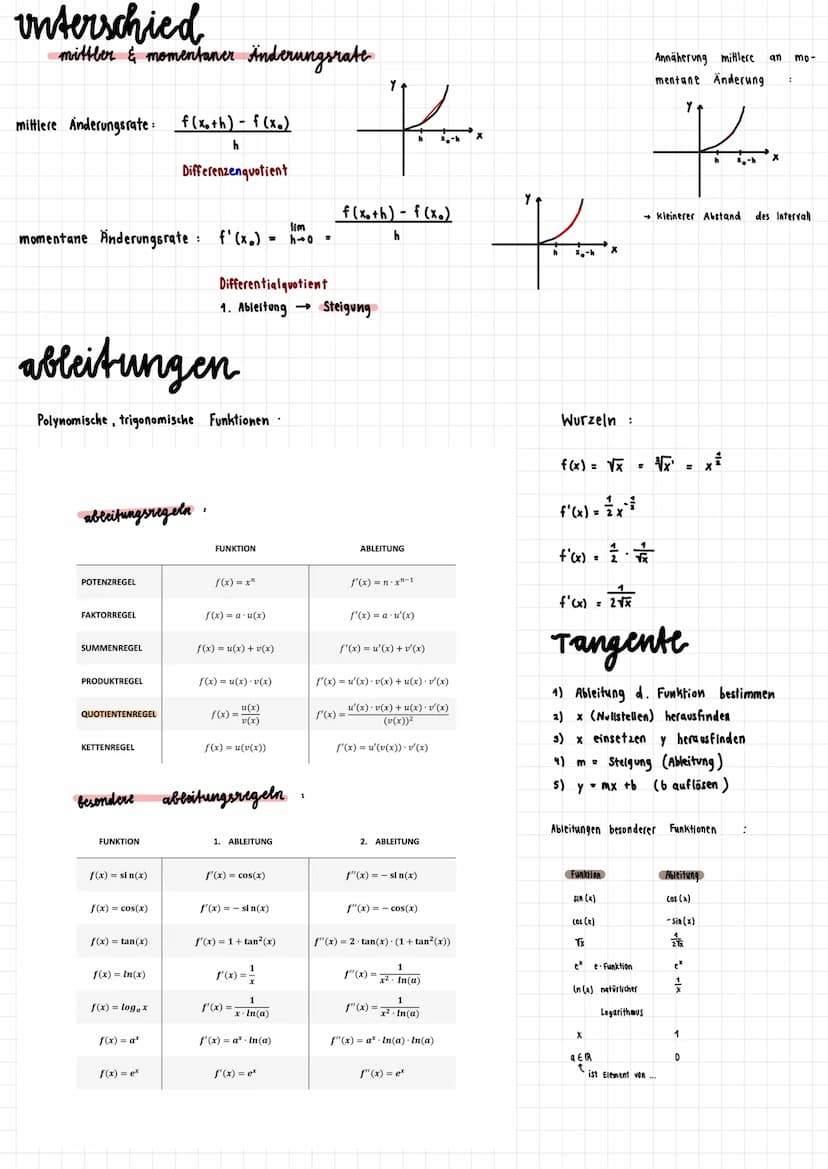 unterschied
mittler & momentaner Änderungsrate
mittlere Änderungsrate: f(x₀+h) - f(x₀)
h
Differenzenquotient
y
h x₀-h x
Annäherung mittlere an mo-
mentane Änderung :
y
h x₀-h x
→ kleinerer Abstand des Intervall
momentane Änderungsrate : f'(x₀) = lim h→0 = f(x₀+h) - f(x₀)
h
y
h x₀-h x
Differentialquotient
1. Ableitung → Steigung
ableitungen
Polynomische, trigonomische Funktionen .
ableitungsregeln :
FUNKTION ABLEITUNG
POTENZREGEL f(x) = xⁿ f'(x) = n · xⁿ⁻¹
FAKTORREGEL f(x) = a · u(x) f'(x) = a · u'(x)
SUMMENREGEL f(x) = u(x) + v(x) f'(x) = u'(x) + v'(x)
PRODUKTREGEL f(x) = u(x) · v(x) f'(x) = u'(x) · v(x) + u(x) · v'(x)
QUOTIENTENREGEL f(x) = u(x)/v(x) f'(x) = u'(x) · v(x) + u(x) · v'(x)/(v(x))²
KETTENREGEL f(x) = u(v(x)) f'(x) = u'(v(x)) · v'(x)
besondere ableitungsregeln :
FUNKTION 1. ABLEITUNG 2. ABLEITUNG
f(x) = sin(x) f'(x) = cos(x) f''(x) = − sin(x)
f(x) = cos(x) f'(x) = − sin(x) f''(x) = − cos(x)
f(x) = tan(x) f'(x) = 1 + tan²(x) f''(x) = 2 · tan(x) · (1 + tan²(x))
f(x) = ln(x) f'(x) = 1/x f''(x) = 1/x² · ln(a)
f(x) = logₐ x f'(x) = 1/x · ln(a) f''(x) = 1/x² · ln(a)
f(x) = aˣ f'(x) = aˣ · ln(a) f''(x) = aˣ · ln(a) · ln(a)
f(x) = eˣ f'(x) = eˣ f''(x) = eˣ
Wurzeln :
f(x) = √x = ²√x¹ = x^½
f'(x) = ½ x^-½
f'(x) = ½ · 1/√x
f'(x) = 1/2√x
Tangente
1) Ableitung d. Funktion bestimmen
2) x (Nullstellen) herausfinden
3) x einsetzen y herausfinden
4) m = Steigung (Ableitung)
5) y = mx +b (b auflösen)
Ableitungen besonderer Funktionen :
Funktion Ableitung
sin (x) cos (x)
cos (x) -sin(x)
√x 1/2√x
eˣ e-Funktion eˣ
ln(x) natürlicher 1/x
Logarithmus
x 1
a ∈ ℝ 0
↑ ist Element von ...